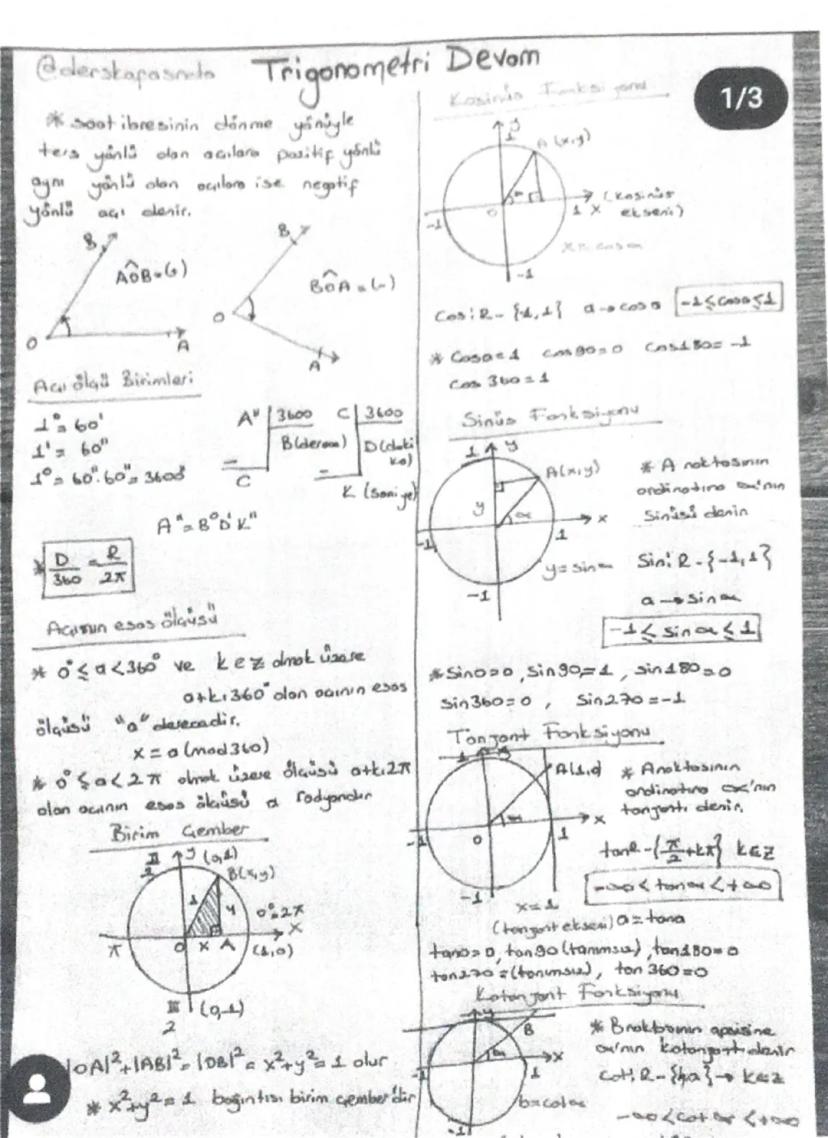 @derskafasında
Trigonometri Devam
1/3
* saat ibresinin dönme yönüyle
ters yönlü olan açılara pozitif yönlü
aynı yönlü olan açılara ise negatif
yönlü açı denir.
B
AÔB=(+)
O
A
B
BÔA=(-)
O
A
Açı ölçü Birimleri
1°=60'
1'=60"
1°=60".60"=3600"
A" 3600
B(derece)
C
C 3600
D(daki
ka)
K (saniye)
A"=B°D'K"
* D/360 = R/2π
Açının esas ölçüsü
* 0°≤a<360° ve k∈Z olmak üzere
a+k.360° olan açının esas
ölçüsü "a" derecedir.
x=a(mod360)
* 0°≤a<2π olmak üzere ölçüsü a+k.2π
olan açının esas ölçüsü a radyandır
Birim Çember
y (0,1)
B(x,y)
1
y
0°=2π
π
O x A
x
(1,0)
(0,-1)
|OA|²+|AB|²=|OB|²=x²+y²=1 olur
* x²+y²=1 bağıntısı birim çember'dir
Kosinüs Fonksiyonu
1 y
A(x,y)
α
-1
O
1 x
(kosinüs
ekseni)
x=cosα
-1
Cos: R-{-1,1} a→cosa -1≤cosa≤1
cos90=0 cos180=-1
cos360=1
Sinüs Fonksiyonu
1 y
A(x,y)
y
α
x
-1
1
y=sinα
-1
* A noktasının
ordinatına α'nın
Sinüsü denir
Sin: R-{-1,1}
a→sinα
-1≤sinα≤1
* Sin0=0, Sin90=1, sin180=0
sin360=0, Sin270=-1
Tanjant Fonksiyonu
1 y
α
x
-1
O
1
-1
x=1
(tanjant ekseni)
* A noktasının
ordinatına α'nın
tanjantı denir.
tanR-{π/2+kπ} k∈Z
-∞<tanα<+∞
a=tana
tan0=0, tan90(tanımsız), tan180=0
tan270=(tanımsız), tan360=0
Kotanjant Fonksiyonu
y
B
α
x
-1
1
b=cotα
-1
* B noktasının apsisine
α'nın kotanjantı denir
k∈Z
-∞<cotα<+∞